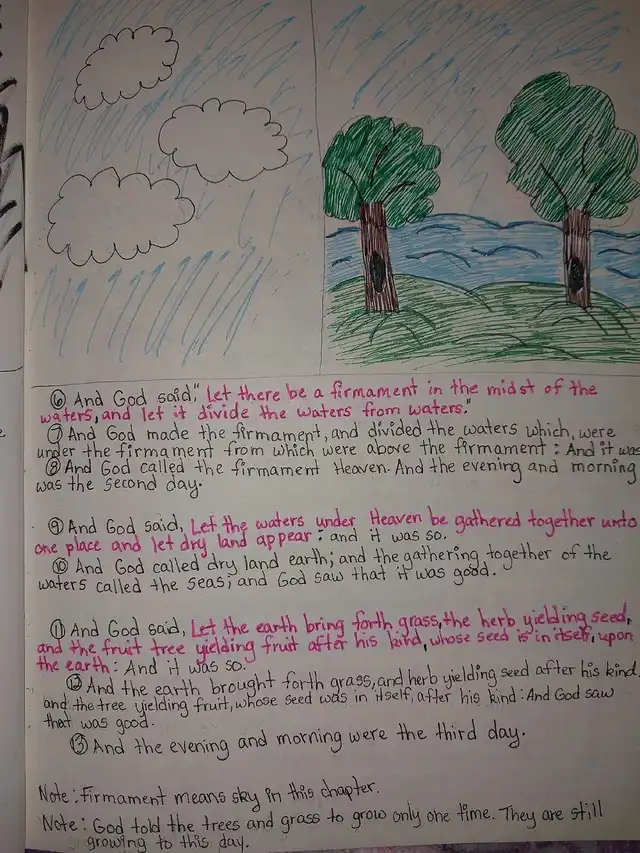 ⑥ And God said," Let there be a firmament in the midst of the
waters, and let it divide the waters from waters."
⑦ And God made the firmament, and divided the waters which, were
under the firmament from which were above the firmament: And it was
⑧ And God called the firmament Heaven. And the evening and morning
was the second day.
⑨ And God said, Let the waters under Heaven be gathered together unto
one place and let dry land appear: and it was so.
⑩ And God called dry land earth; and the gathering together of the
waters called the seas; and God saw that it was good.
⑪ And God said, Let the earth bring forth grass, the herb yielding seed,
and the fruit tree yielding fruit after his kind, whose seed is in itself, upon
the earth: And it was so.
⑫ And the earth brought forth grass, and herb yielding seed after his kind,
and the tree yielding fruit, whose seed was in itself, after his kind: And God saw
that was good.
⑬ And the evening and morning were the third day.
Note: Firmament means sky in this chapter.
Note: God told the trees and grass to grow only one time. They are still
growing to this day.